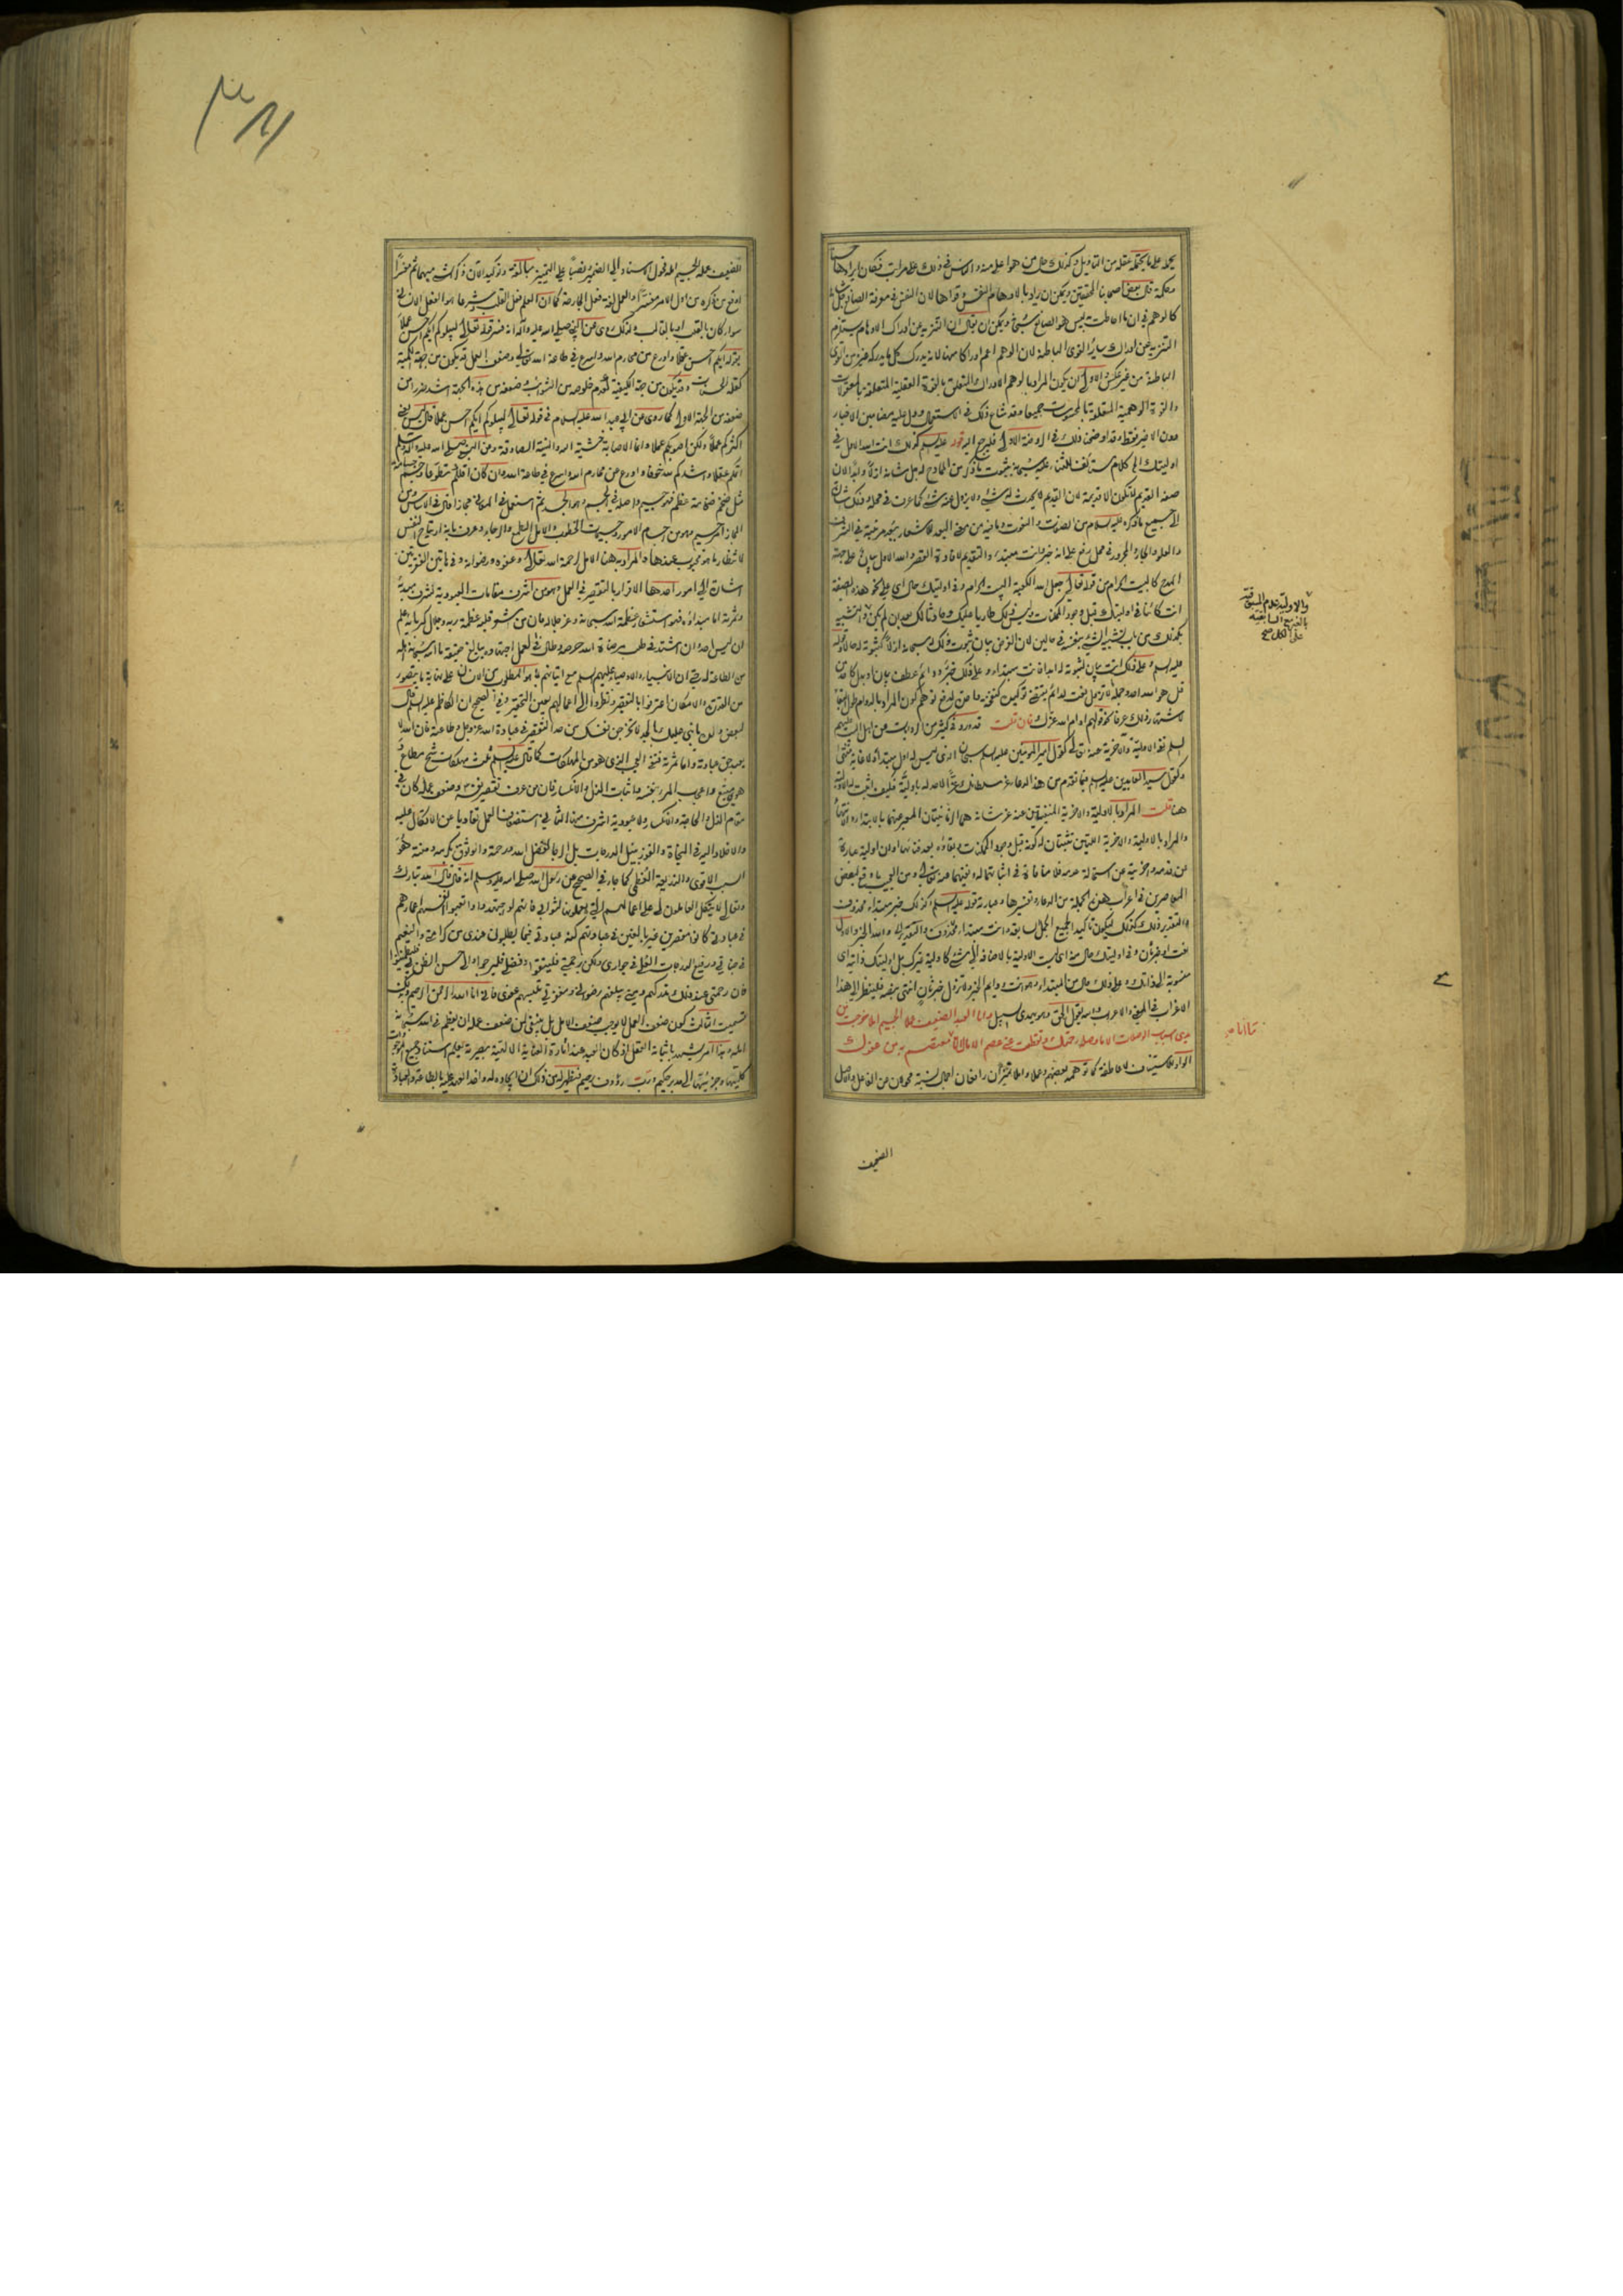 يحمله على ما يحتمله عقله من التأويل وكذلك حال من هو اعلى منه والناس في ذلك على مراتب فكان ايرادها حسنا
وحكمة قال بعض اصحابنا المحققين ويمكن ان يراد بالاوهام النفوس وقواها لان النفس في معرفة الصانع جل شانه
كالوهم في ان ما احاطت به ليس هو الصانع سبحانه ويمكن ان يقال ان التنزيه عن ادراك الاوهام يستلزم
التنزيه عن ادراك سائر القوى الباطنة لان الوهم اعم ادراكا منها لانه يدرك كل ما يدركه غيره من القوى
الباطنة من غير عكس والاولى ان يكون المراد بالوهم الادراك المتعلق بالقوة العقلية المتعلقة بالمعقولات
والقوة الوهمية المتعلقة بالمحسوسات جميعا وقد شاع ذلك في الاستعمال ودل عليه مضامين الاخبار
دون الاخير فقط وقد اوضحنا ذلك في الروضة الاولى فليرجع اليه قوله عليه السلام كذلك انت الله الاول في
اوليتك الى كلام مستأنف للثناء عليه سبحانه بثبوت ما ذكر من المدائح له جل شانه ازلا وابدا لان
صفة القديم لا تكون الا قديمة لان القديم لا يحدث له شيء ولا يزول عنه شيء كما عرفت في محله وذلك اشارة
الى جميع ما ذكره عليه السلام من الصفات والنعوت وما فيه من معنى البعد للاشعار ببعد مرتبته في الشرف
والعلو والجار والمجرور في محل رفع على انه خبر لانت مبتدأ والتقديم لافادة القصر والله الاول بيان على جهة
المدح كالبيت الحرام من قوله تعالى جعل الله الكعبة البيت الحرام وفي اوليتك حال اي على نحو هذه الصفة
انت كائنا في اوليتك قبل وجود الممكنات وليس ذلك طاريا عليك وحادثا لك بعد ان لم يكن والتشبيه
بكذلك من باب تشبيه الشيء بنفسه في حالين لان الغرض بيان ثبوت ذلك له سبحانه ازلا كثبوته له حالا قوله
عليه السلام وعلى ذلك انت بيان لثبوته له ابدا فانت مبتدأ وعلى ذلك خبره ودائم عطف بيان او بدل كاحد من
قل هو الله احد
فان قلت قد ورد في كثير من الروايات عن اهل البيت عليهم
السلم نفي الاولية والاخرية عنه تعالى كقول امير المؤمنين عليه السلم سبحان الذي ليس له اول مبتدأ ولا غاية منتهى
وكقول سيد العابدين عليه السلم فيما تقدم من هذا الدعاء عز سلطانك عزا لا حد له باولية فكيف اثبت له الاولية
هنا قلت المراد بالاولية والاخرية المنفيتين عنه عز شانه هما الزمانيتان المعبر عنهما بالابتداء والانتهاء
والمراد بالاولية والاخرية اللتين تثبتان له كونه قبل وجود الممكنات وبقاؤه بعد فنائها او ان اوليته عبارة
عن قدمه واخريته عن استحالة عدمه فلا منافاة في اثباتهما له ونفيهما عنه تعالى ومن العجب ما وقع لبعض
المعاصرين في اعراب هذه الجملة من الدعاء وتفسيرها وعبارته قوله عليه السلم كذلك خبر مبتدأ محذوف
والتقدير ذلك كذلك ليكون تاكيدا لجميع الجمل السابقة وانت مبتدأ محذوف والله الخبر والاول
نعت او خبر ثان وفي اوليتك حال
منسوبة الى ذاتك وعلى ذلك حال من المبتدأ وهو انت ودائم الخبر ولا تزول خبر ثان انتهى بنصه فلينظر الى هذا
الاغراب في المعنى والاعراب والله يقول الحق وهو يهدي السبيل وانا العبد الضعيف عملا الجسيم املا خرجت من
يدي اسباب الوصلات الا ما وصله رحمتك وتقطعت عني عصم الامال الا ما انا معتصم به من عفوك
الواو للاستيناف لا عاطفة كما توهمه بعضهم وعملا واملا تمييزان رافعان لاجمال نسبة محولان عن الفاعل والاصل
والاولية بعدم المسبوقية
بالغير مع السابقية
على الكل صح
ما انا
الضعيف
الضعيف عمله الجسيم امله فحول الاسناد الى الضمير ونصبا على التمييز مبالغة وتوكيدا لان ذكر الشيء مبهما ثم مفسرا
اوقع من ذكره من اول الامر مفسرا والعمل لغة فعل الجارحة كما ان العلم فعل القلب وشرعا هو الفعل الانساني
سواء كان بالقلب او بالقالب ولذلك روي عن النبي صلى الله عليه وآله انه فسر قوله تعالى ليبلوكم ايكم احسن عملا
بقوله ايكم احسن عقلا واورع عن محارم الله واسرع في طاعة الله تعالى وضعف العمل قد يكون من جهة الكمية
كقلة الحسنات وقد يكون من جهة الكيفية كعدم خلوصه من الشوائب وضعفه من هذه الجهة اشد ضررا من
ضعفه من الجهة الاولى كما روي عن ابي عبد الله عليه السلام في قوله تعالى ليبلوكم ايكم احسن عملا قال ليس يعني
اكثركم عملا ولكن اصوبكم عملا وانما الاصابة خشية الله والنية الصادقة وعن النبي صلى الله عليه واله وسلم
اتمكم عقلا واشدكم لله خوفا واورع عن محارم الله واسرع في طاعة الله وان كان اقلكم تطوعا وجسم جسامة
مثل ضخم ضخامة عظم فهو جسيم واصله في الجسم وهو الجسد ثم استعمل في المعاني مجازا قال في الاساس ومن
المجاز امر جسيم وهو من اجسام الامور وجسيمات الخطوب والامل الطمع والرجاء وعرف بانه ارتياح النفس
لانتظار ما هو محبوب عندها والمراد به هنا الامل لرحمة الله تعالى وعفوه ورضوانه وفي هاتين الفقرتين
اشارة الى امور احدها الاقرار بالتقصير في العمل وهو من اشرف مقامات العبودية لشرف مبدئه
وثمرته اما مبدأه فهو استشعار عظمة الله سبحانه وعز جلاله فان من استشعر قلبه عظمة ربه وجلال كبريائه علم
ان ليس احد وان اشتد في طلب مرضاة الله حرصه وطال في العمل اجتهاده ببالغ حقيقة ما الله سبحانه اهله
من الطاعة له حتى ان الانبياء والاوصياء عليهم السلم مع اتيانهم بما هو المطلوب من الانسان على غاية ما يتصور
من القدرة والامكان اعترفوا بالتقصير ونظروا الى اعمالهم بعين التحقير وفي الصحيح ان الكاظم عليه السلم قال
لبعض ولده يا بني عليك بالجد لا تخرجن نفسك من حد التقصير في عبادة الله عز وجل وطاعته فان الله لا
يعبد حق عبادته واما ثمرته فنفي العجب الذي هو من المهلكات كما قال عليه السلم ثلث مهلكات شح مطاع و
هوى متبع واعجاب المرء بنفسه واثبات الذل والانكسار فان من عرف تقصير نفسه وضعف عمله كان في
مقام الذل والحاجة والانكسار ولا عبودية اشرف منها الثاني استضعاف العمل تفاديا عن الاتكال عليه
والاخلاد اليه في النجاة والفوز بنيل الدرجات بل الرجاء لفضل الله ورحمته والوثوق بكرمه ومنه هو
السبب الاقوى والذريعة العظمى كما جاء في الصحيح عن رسول الله صلى الله عليه وسلم انه قال قال الله تبارك
وتعالى لا يتكل العاملون لي على اعمالهم التي يعملون لثوابي فانهم لو اجتهدوا واتعبوا انفسهم اعمارهم
في عبادتي كانوا مقصرين غير بالغين في عبادتهم كنه عبادتي فيما يطلبون عندي من كرامتي والنعيم
في جناتي ورفيع الدرجات العلى في جواري ولكن برحمتي فليثقوا وفضلي فليرجوا والى حسن الظن بي فليطمئنوا
فان رحمتي عند ذلك تدركهم ومني يبلغهم رضواني ومغفرتي تلبسهم عفوي فاني انا الله الرحمن الرحيم وبذلك
تسميت الثالث كون ضعف العمل لا يوجب ضعف الامل بل ينبغي لمن ضعف عمله ان يعظم في الله سبحانه
امله وهذا امر يشهد باثباته العقل
كليتها وجزئيتها الى مدبر حكيم ورب رؤوف رحيم فيظهر له من ذلك ان ايجاده له واخذ العهد عليه بالطاعة والعبادة